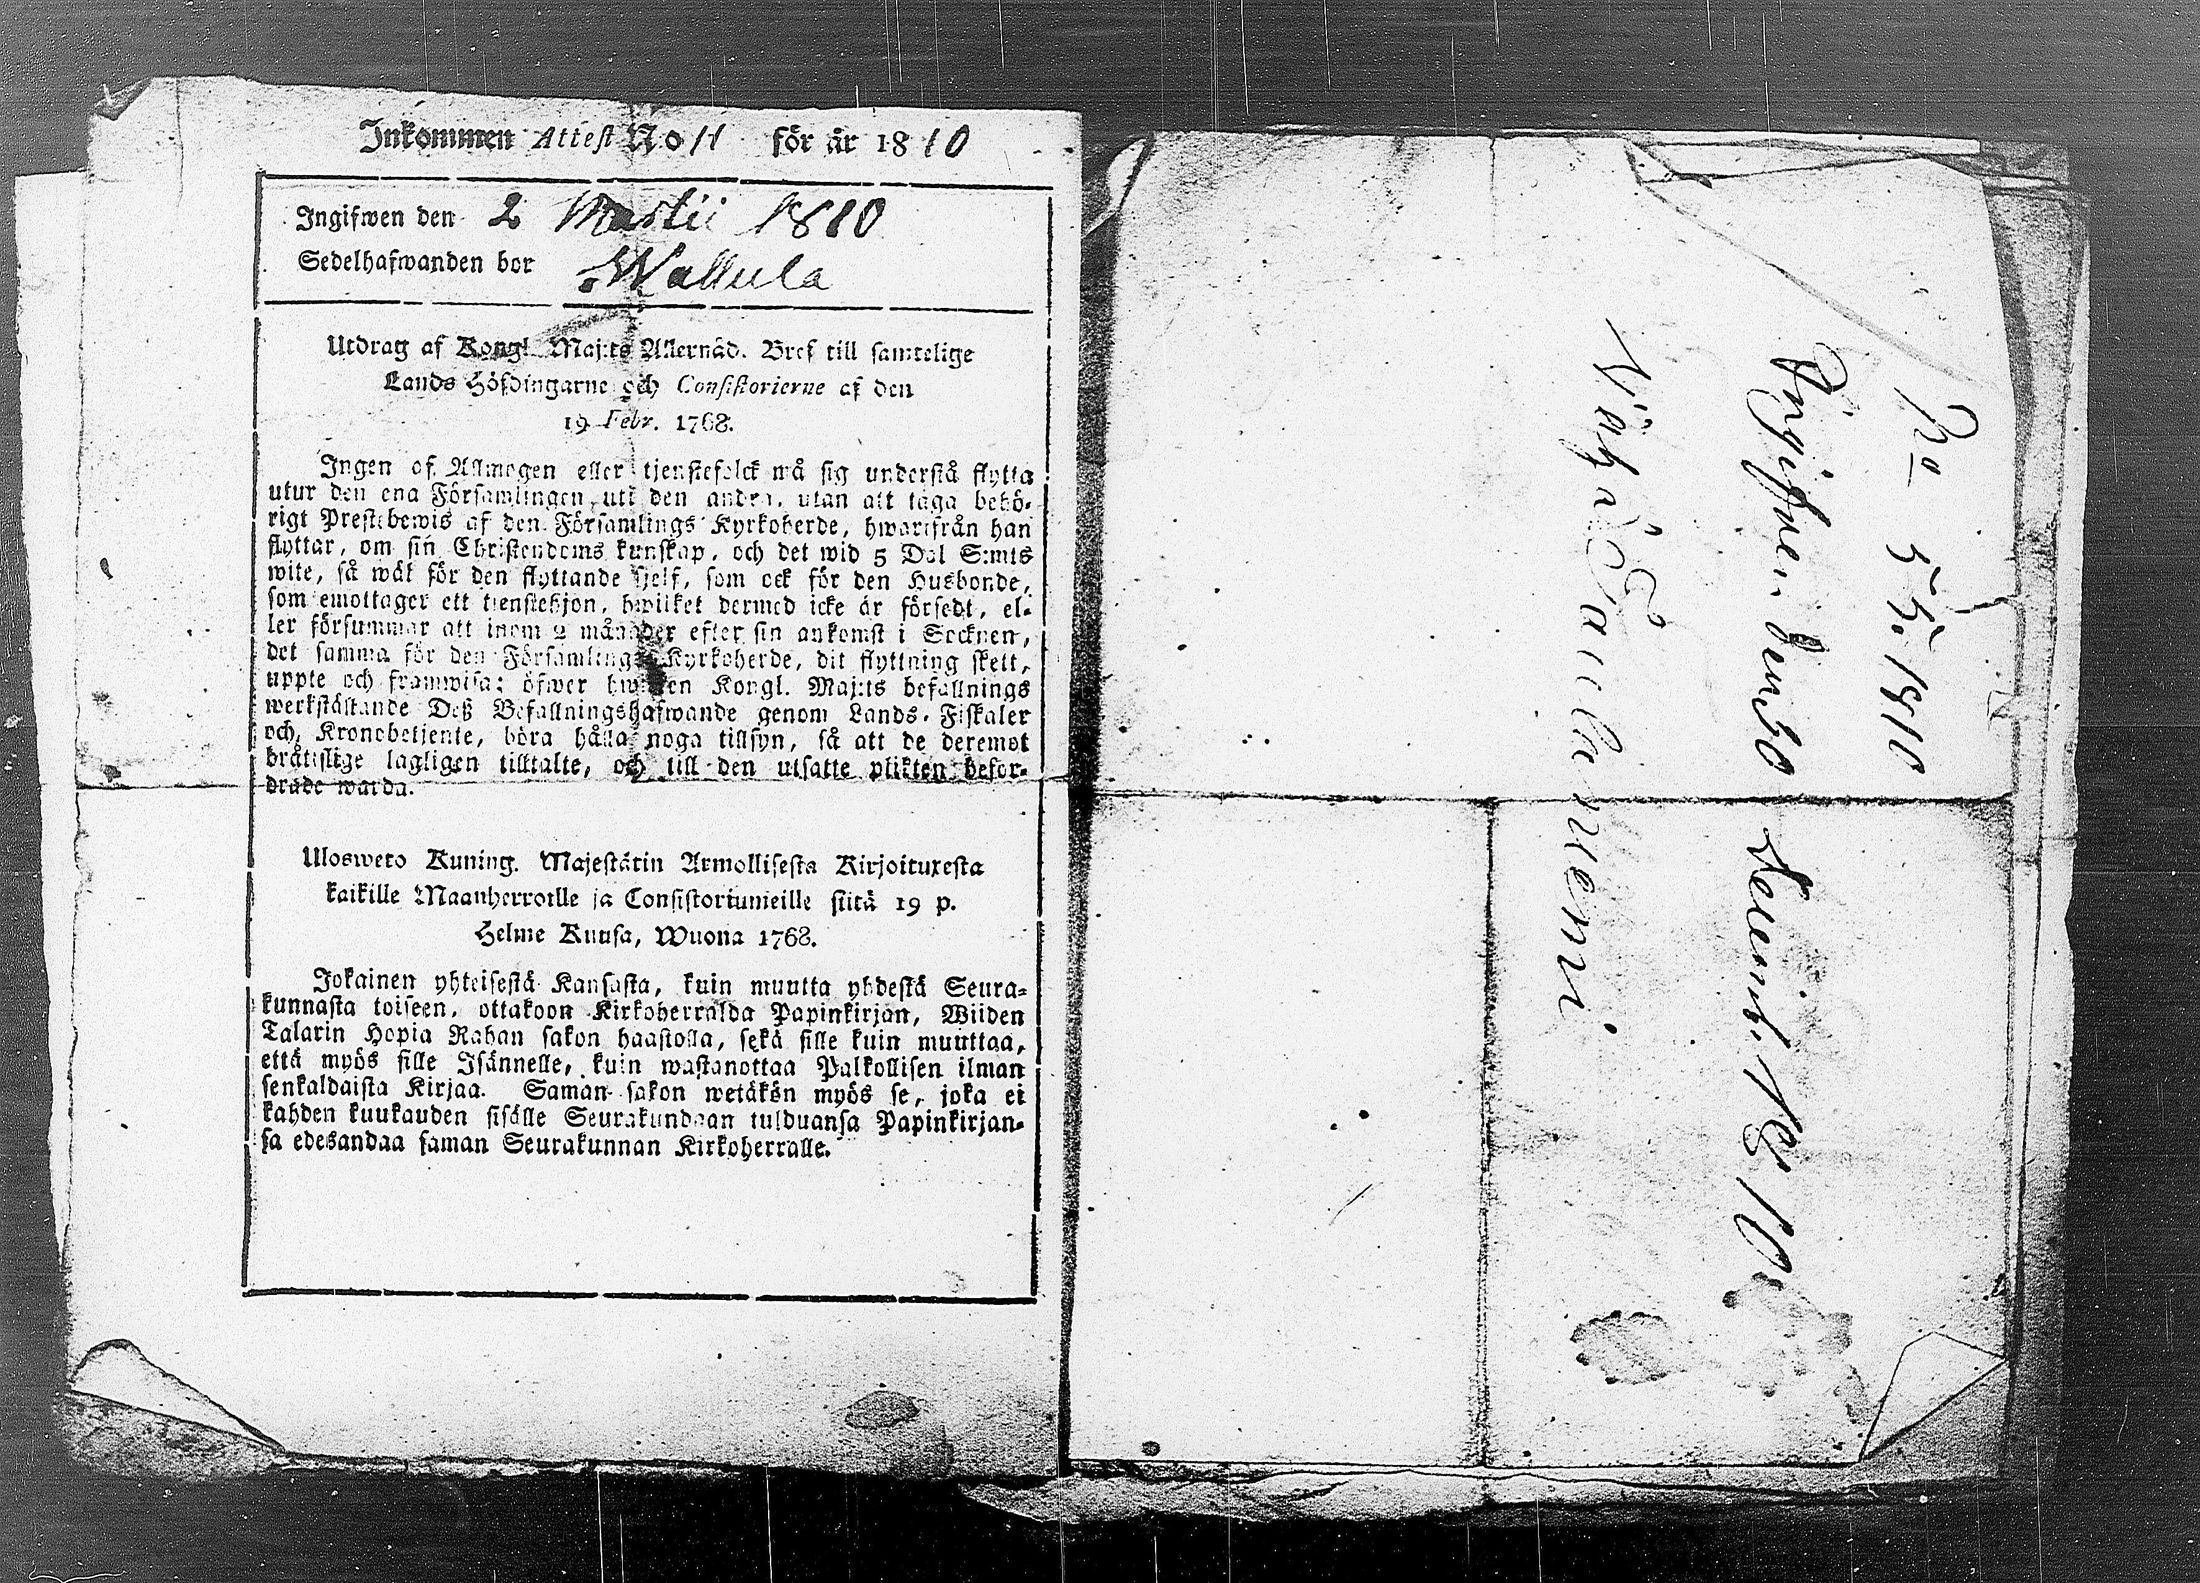 Inkommen Attest No 11 för år 1810
Ingifwen den 2 Martii 1810
Sedelhafwanden bor Wallula
Utdrag af Kongl. Maj:ts Allernåd. Bref till samtelige
Lands Höfdingarne och Consistorierne af den
19 Febr. 1768.
Ingen af Allmogen eller tjenstefolck må sig understå flytta
utur den ena Församlingen uti den andra, utan att taga behö-
rigt Prestebewis af den Församlings Kyrkoherde, hwarifrån han
flyttar, om sin Christendoms kunskap, och det wid 5 Dal S:mts
wite, så wäl för den flyttande sjelf, som ock för den Husbonde,
som emottager ett tjenstehjon, hwilket dermed icke är försedt, el-
ler försummar att inom 2 månader efter sin ankomst i Socknen,
det samma för den Församlings Kyrkoherde, dit flyttning skett,
uppte och framwisa; öfwer hwilken Kongl. Maj:ts befallnings
werkställande Deß Befallningshafwande genom Lands-Fiskaler
och Kronobetjente, böra hålla noga tillsyn, så att de deremot
bråtislige lagligen tilltalte, och till den utsatte plikten befor-
drade warda.
Ulosweto Kuning. Majestätin Armollisesta Kirjoituxesta
kaikille Maanherroille ja Consistoriumeille siitä 19 p.
Helme Kuusa, Wuona 1768.
Jokainen yhteisestä Kansasta, kuin muutta yhdestä Seura-
kunnasta toiseen, ottakoon Kirkoherralda Papinkirjan, Wiiden
Talarin Hopia Rahan sakon haastolla, sekä sille kuin muuttaa,
että myös sille Isännelle, kuin wastanottaa Palkollisen ilman
senkaldaista Kirjaa. Saman sakon wetäkön myös se, joka ei
kahden kuukauden sisälle Seurakundaan tulduansa Papinkirjan-
sa edesandaa saman Seurakunnan Kirkoherralle.
No 55. 1810
Ingifven den 30 Decemb. 1810